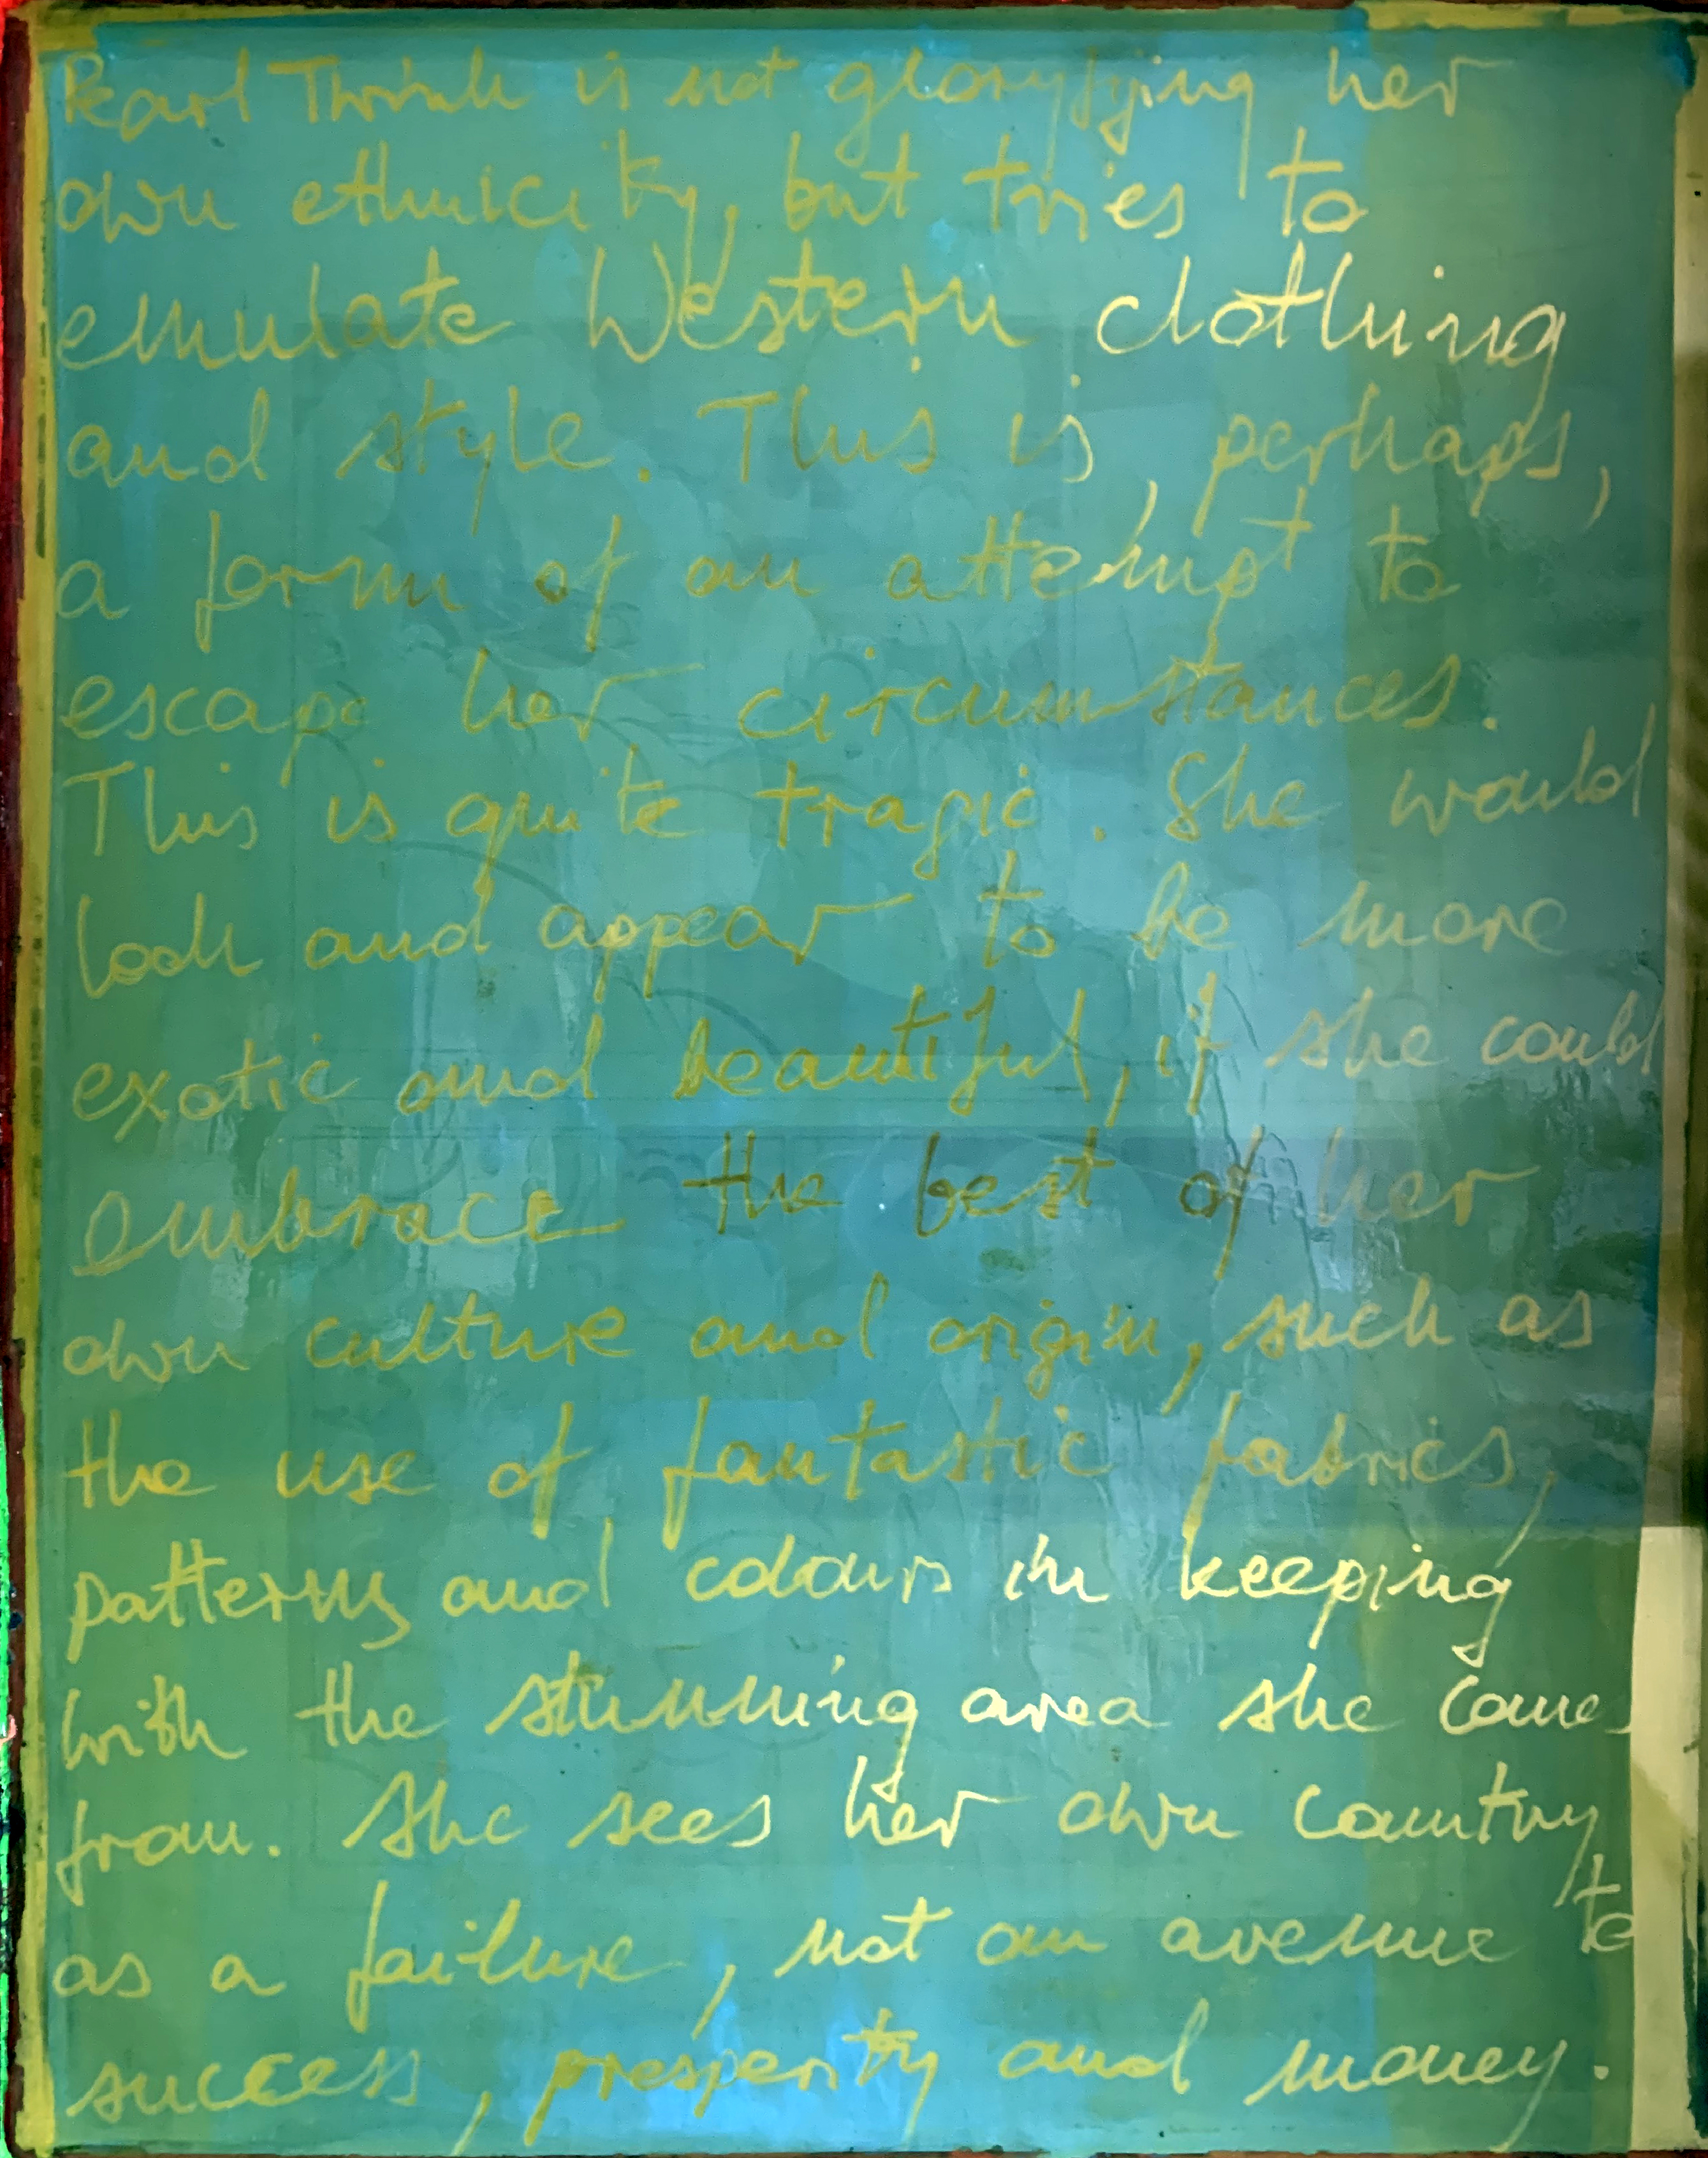 Pearl Thrish is not gloryfying her
own ethnicity, but tries to
emulate Western clothing
and style. This is, perhaps,
a form of an attempt to
escape her circumstances.
This is quite tragic. She would
look and appear to be more
exotic and beautiful, if she could
embrace the best of her
own culture and origin, such as
the use of fantastic fabrics,
patterns and colours in keeping
with the stunning area she comes
from. She sees her own country
as a failure, not an avenue to
success, prosperity and money.